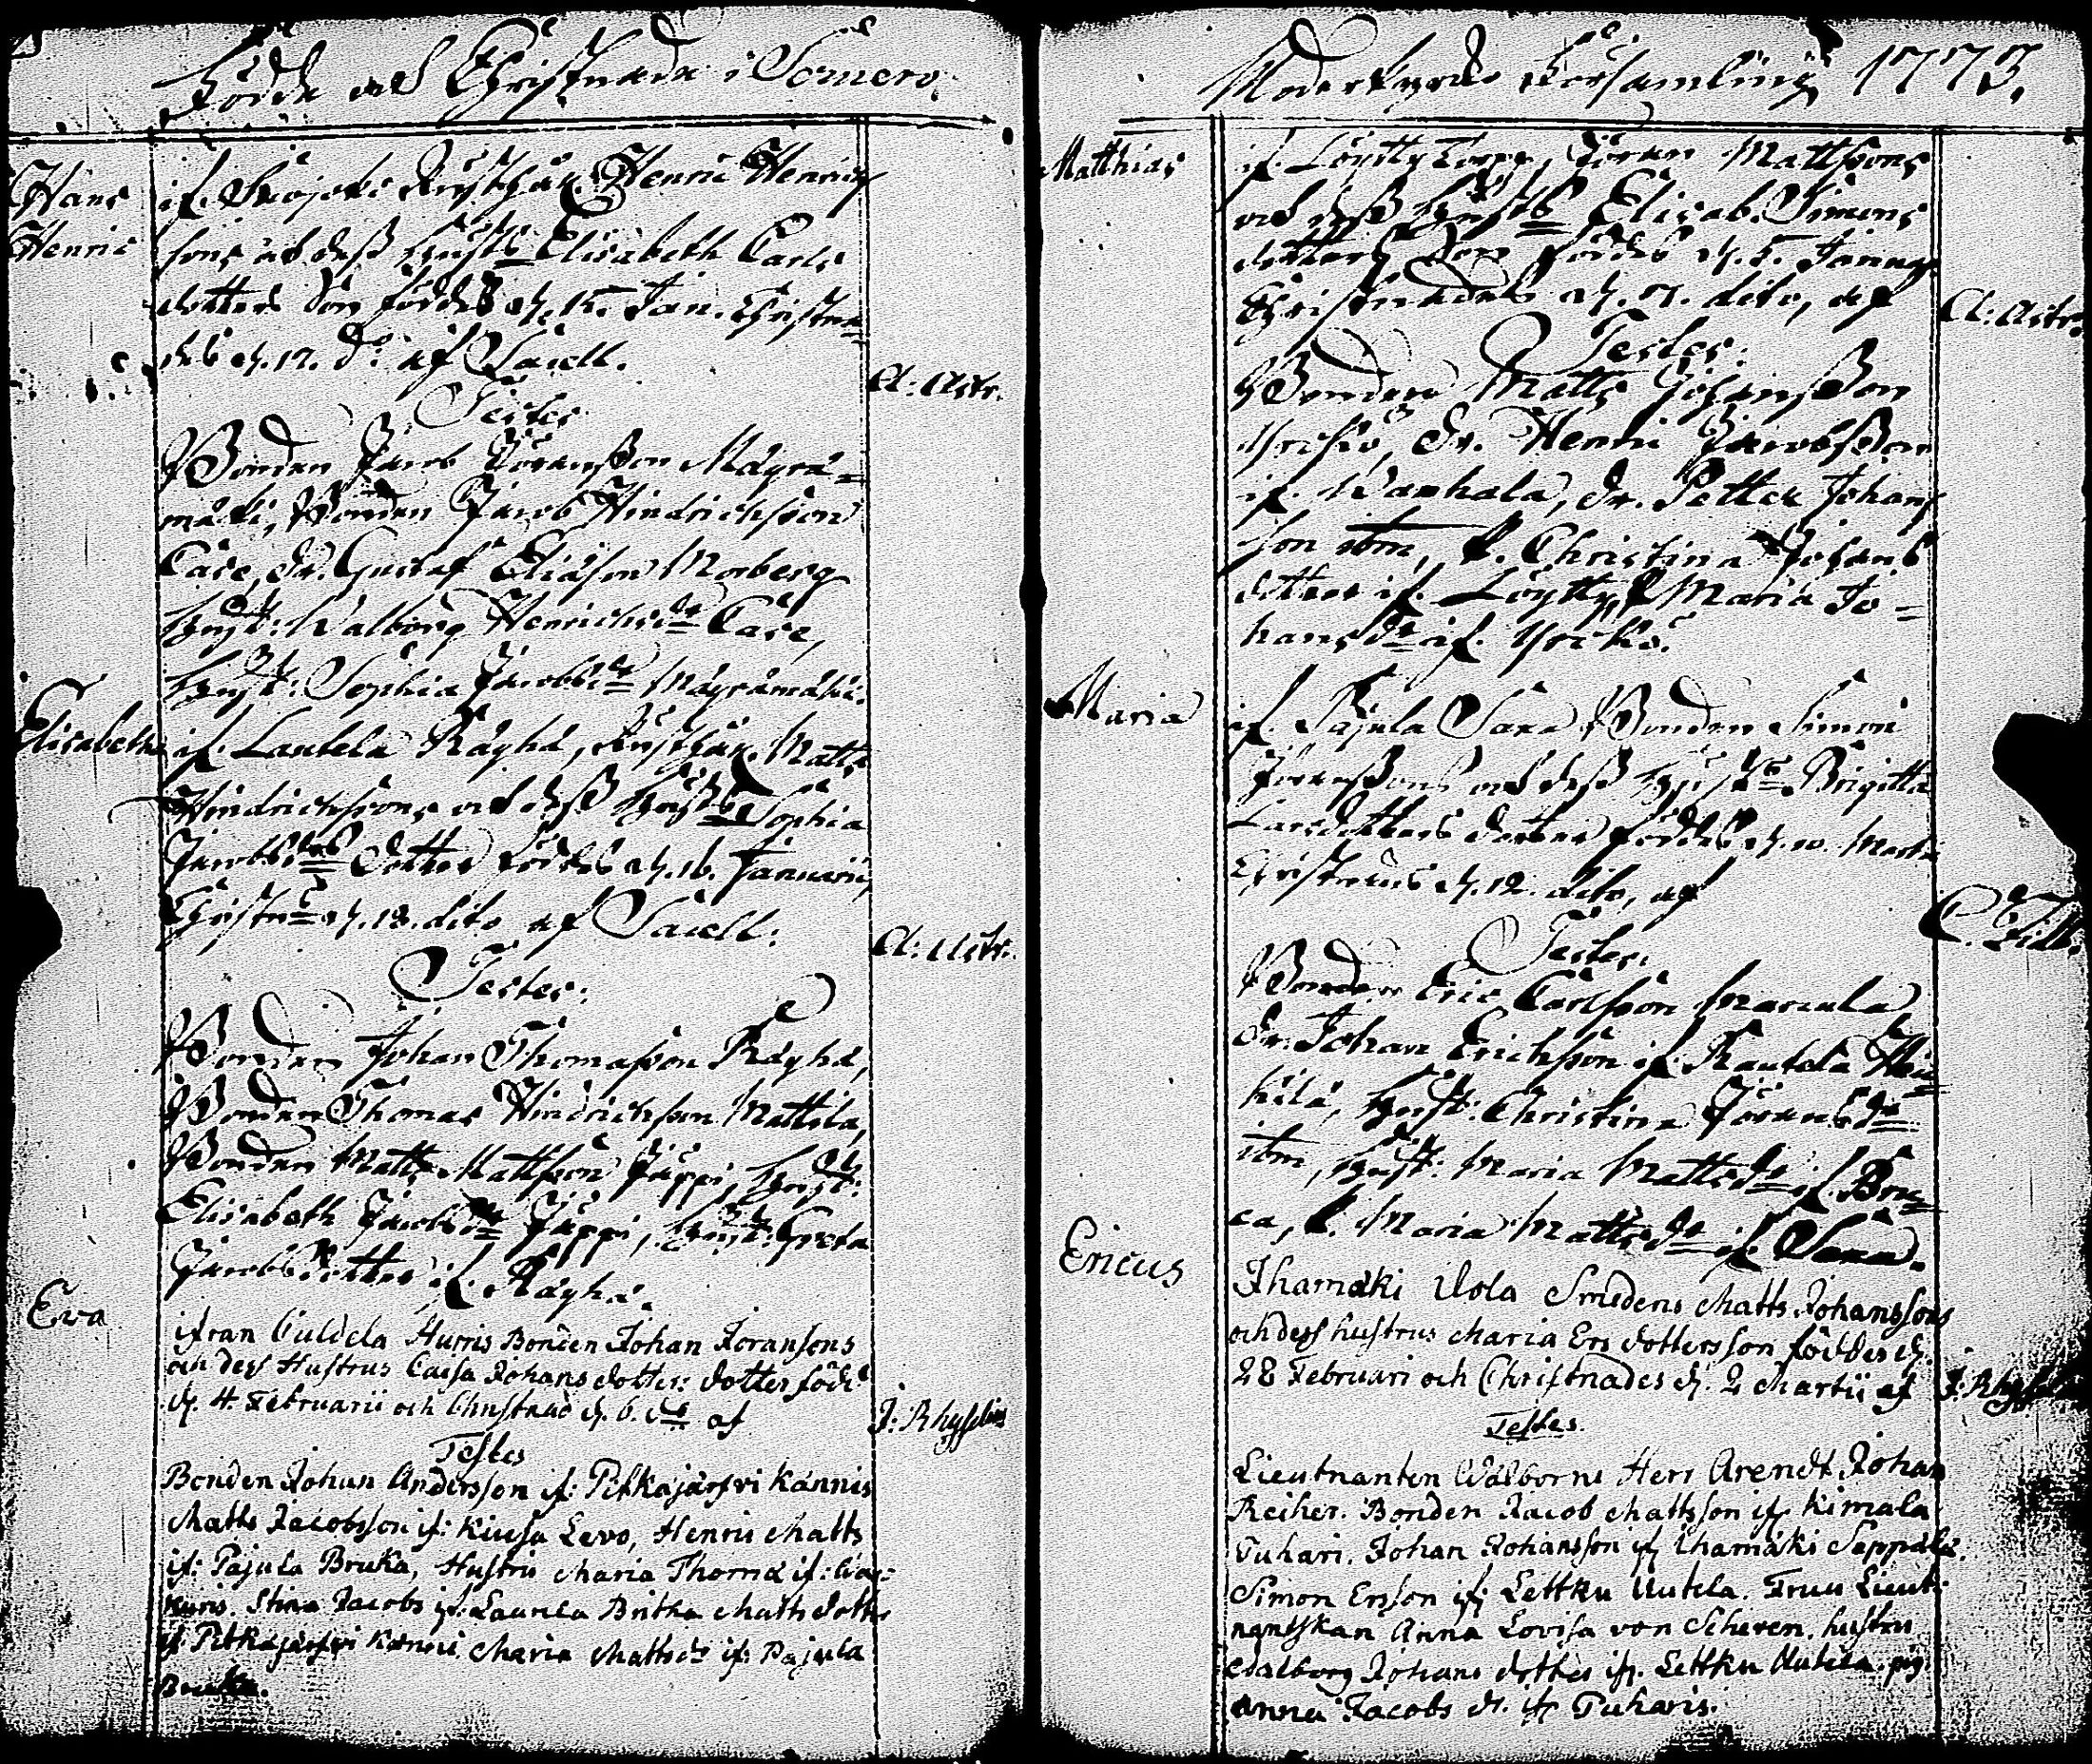 Födde och Christnade i Somero
Hans
Henric
if. Skojoki Rusthåll. Henric Henrics
sons och dess hust: Elisabeth Carls
dotters Son föddes d. 15. Jan. Christna
des d. 17. do af Saell.
A: Astr.
Testes
Bonden Jacob Göransson Mäyrä=
mäki, Bonden Jacob Hindrichsson
Case, Dr. Gustaf Eliason Morberg
hust: Walborg Henrichsdr Case,
hust: Sophia Jacobsdr Mäyrämäki.
Elisabetha
if. Lautela Räyhä, Rusthåll. Matts
Hindrichssons och dess hust: Sophia
Jacobsdrs Dotter föddes d. 16. Januarii,
Christn. d. 18. dito af Saell:
A: Astr.
Testes:
Bonden Johan Thomasson Räyhä,
Bonden Thomas Hindrichsson Mattila,
Bonden Matts Mattsson Jäppi, hust:
Elisabeth Jacobsdr Jäppi, hust: Greta
Jacobsdotter if. Räyhä.
Eva
ifran Paldela Hurris Bonden Johan Joransons
och dess Hustrus Caisa Johans dotter: dotter född
d. 4. Februarii och Christnad d. 6. do af
J: Rhysselius
Testes
Bonden Johan Andersson if: Pitkajärfvi Kannis
Matts Jacobsson if: Kiusa Levo, Henric Matts
if: Pajula Bruka, Hustru Maria Thoma if:
Stina Jacobs if: Laurila Britha Matts dotter
if Pitkajärfvi Kannis. Maria Mattsdr if: Pajula
Bruka.
Moderkyrko Församling 1773.
Matthias
if. Löytty Torpp, Jöran Mattssons
och dess hust: Elisab. Simons
dotters Son föddes d. 5. Januar.
Christnades d. 7. dito, af
A: Astr.
Testes:
Bonden Matts Johansson
Yrckö, Dr. Henric Jacobsson
if. Wanhala, Dr. Petter Johans
son ibm, P. Christina Johans
dotter if. Löytty, P Maria Jo=
hansdr if. Yrckö.
Maria
if. Pajula Saxa Bonden Simon
Jöranssons och dess hustrus Brigitta
Larsdotters dotter föddes d. 10. Martii
Christnades d. 12. dito, af
Testes.
Bonden Eric Carlsson Marcula
Dr. Johan Erichsson if. Rautela Hei
kilä, hust: Christina Jöransdr
ibm, hust: Maria Mattsdr if. Bru
ca, P. Maria Mattsdr if. Saxa.
Ericus
Ihamäki Uola Smedens Matts Johanssons
och dess hustrus Maria Ers dotters son föddes d.
28 Februari och Christnades d. 2 Martii af
Testes.
Lieutnanten Wälborne Herr Arendt Johan
Reiher. Bonden Jacob Mattsson if Kimala
Puhari. Johan Johansson if Ihamäki Seppälä.
Simon Ersson if Lettku Uutela. Fruu Lieut
nantskan Anna Lovisa von Scheven. hustru
Walborg Johans dotter if. Lettku Uutela. pig
Anna Jacobs dr. if Puharis.